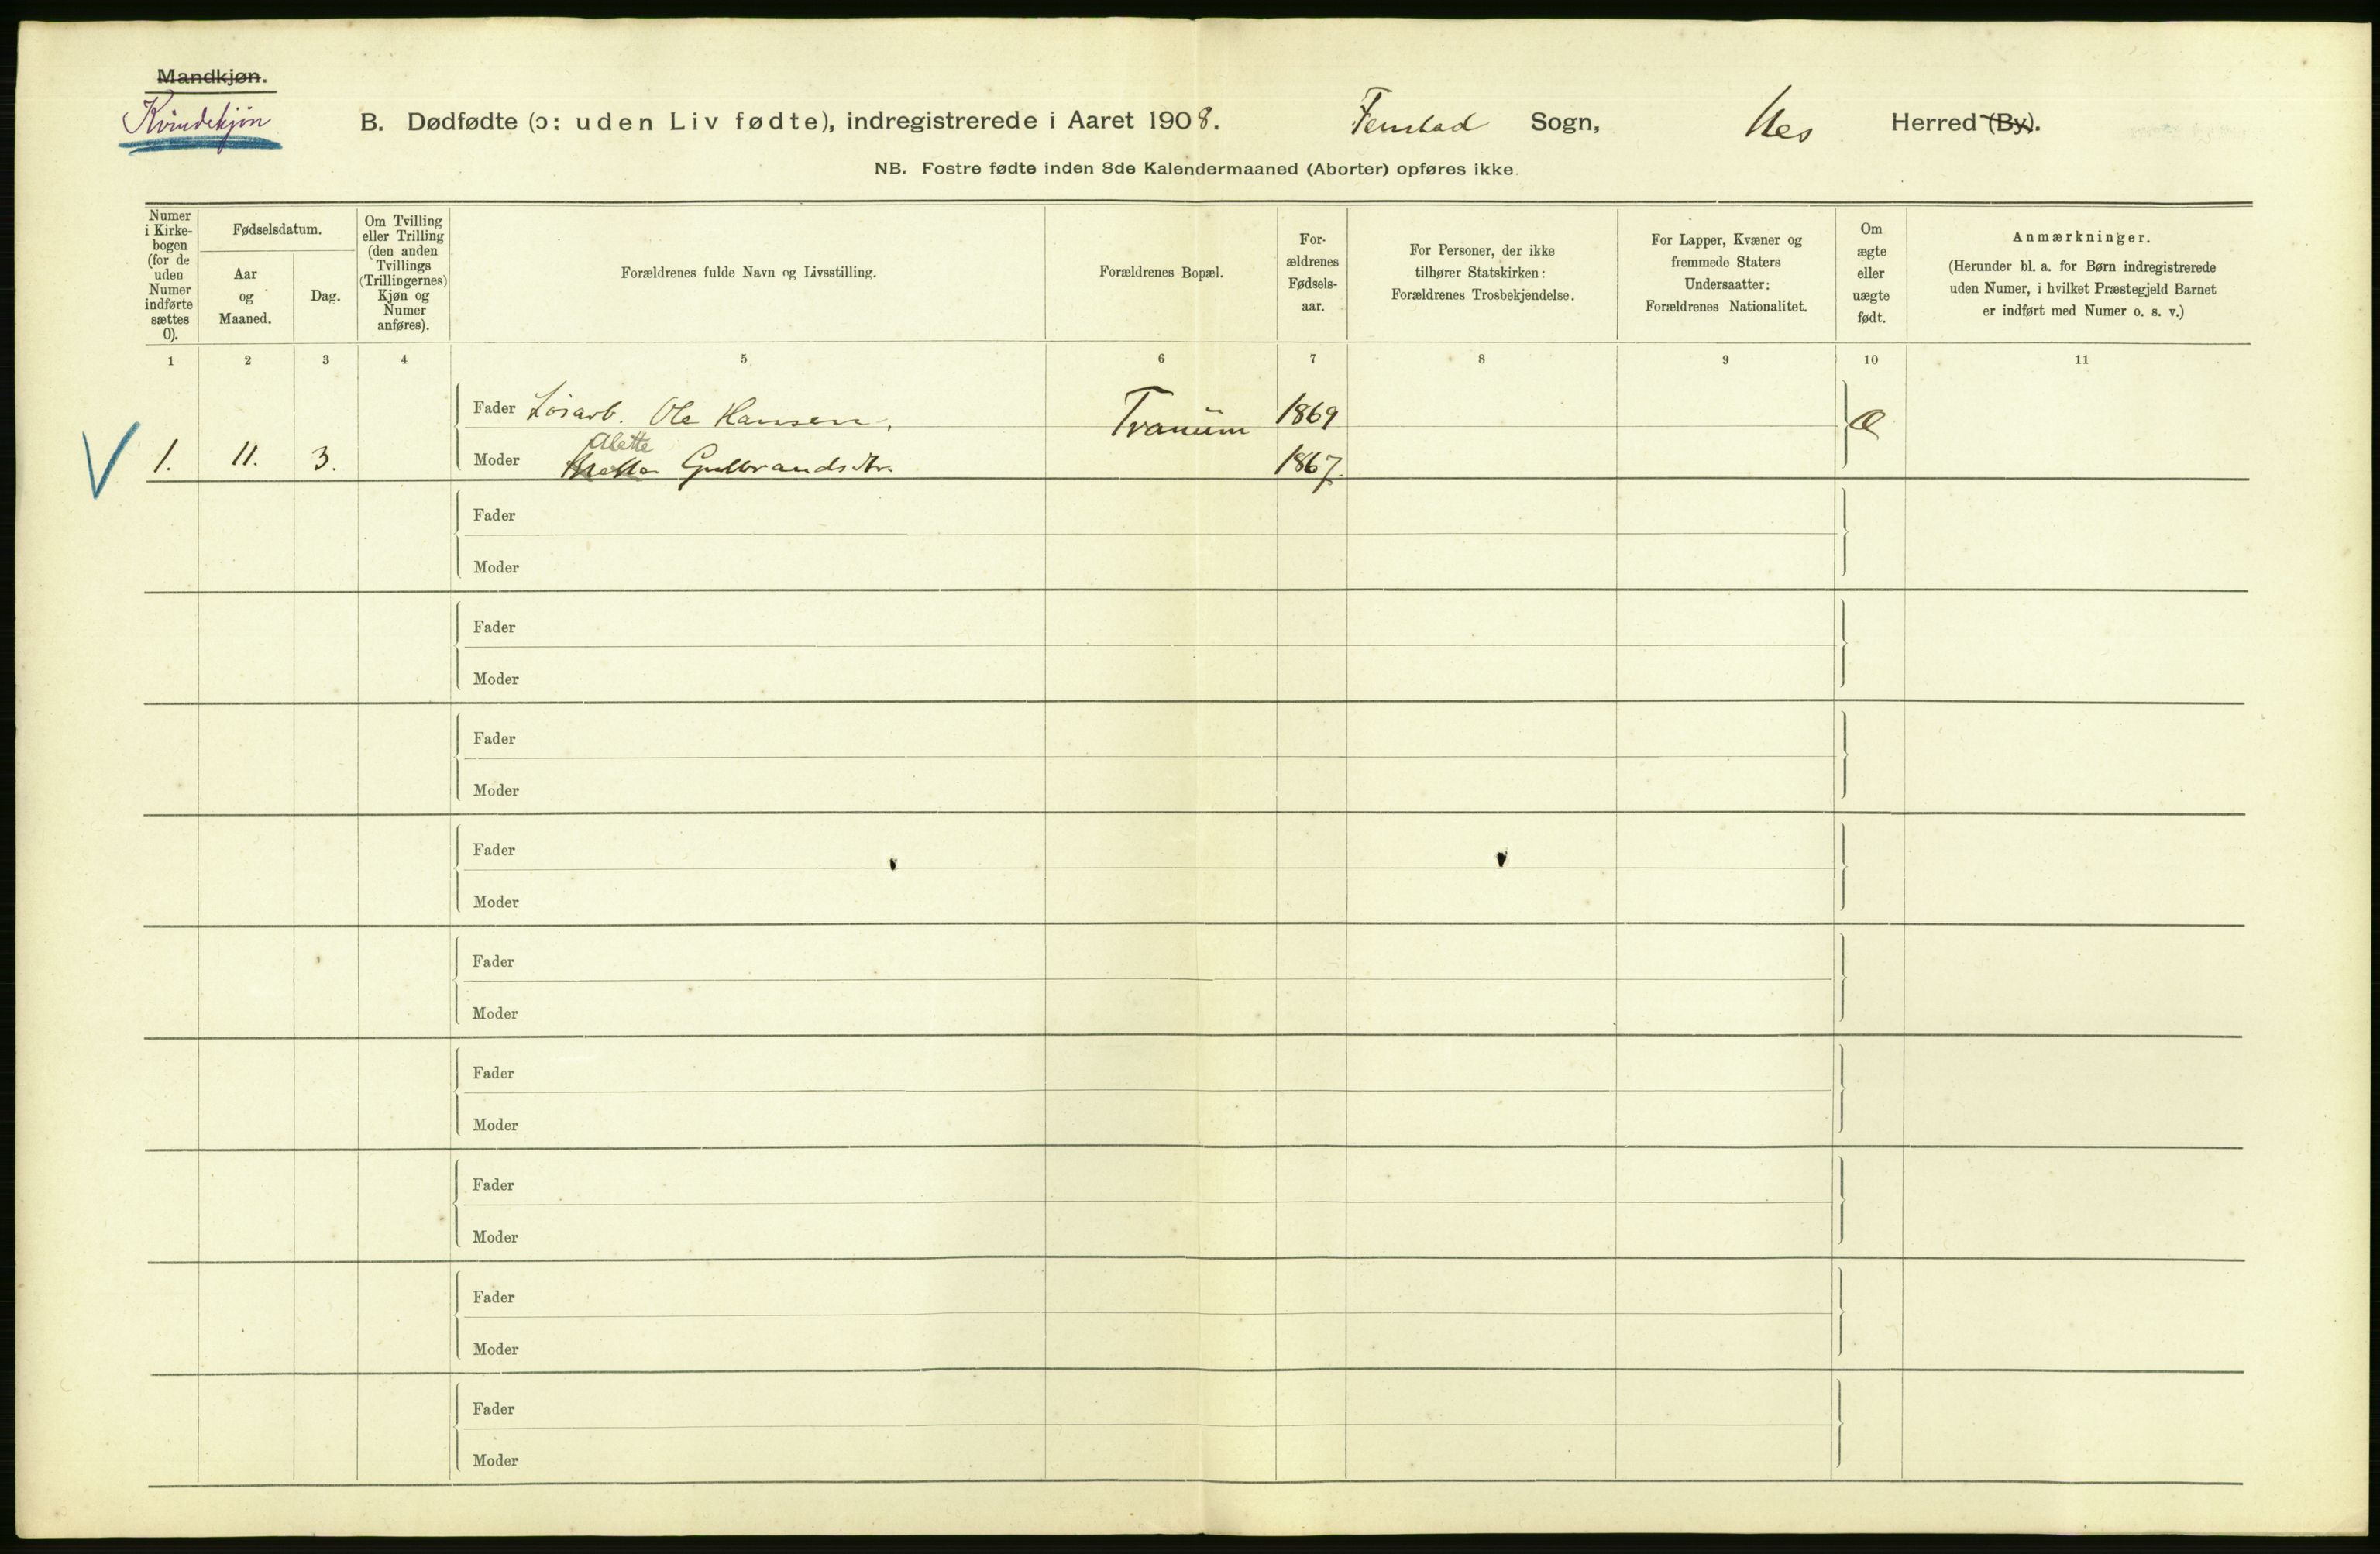 Mandkjøn.
Kvindekjøn
B. Dødfødte (ɔ: uden Liv fødte), indregistrerede i Aaret 1908. Fenstad Sogn, Nes Herred (By).
NB. Fostre fødte inden 8de Kalendermaaned (Aborter) opføres ikke.
Numer
i Kirke-
bogen
(for de
uden
Numer
indførte
sættes
0).
Fødselsdatum.
Aar
og
Maaned.
Dag.
Om Tvilling
eller Trilling
(den anden
Tvillings
(Trillingernes)
Kjøn og
Numer
anføres).
Forældrenes fulde Navn og Livsstilling.
Forældrenes Bopæl.
For-
ældrenes
Fødsels-
aar.
For Personer, der ikke
tilhører Statskirken:
Forældrenes Trosbekjendelse.
For Lapper, Kvæner og
fremmede Staters
Undersaatter:
Forældrenes Nationalitet.
Om
ægte
eller
uægte
født.
Anmærkninger.
(Herunder bl. a. for Børn indregistrerede
uden Numer, i hvilket Præstegjeld Barnet
er indført med Numer o. s. v.)
1 2 3 4 5 6 7 8 9 10 11
Fader Løsarb. Ole Hansen, Tranum 1869 Æ
Alette
1. 11. 3. Moder Gulbrandsdtr. 1867.
Fader
Moder
Fader
Moder
Fader
Moder
Fader
Moder
Fader
Moder
Fader
Moder
Fader
Moder
Fader
Moder
Fader
Moder